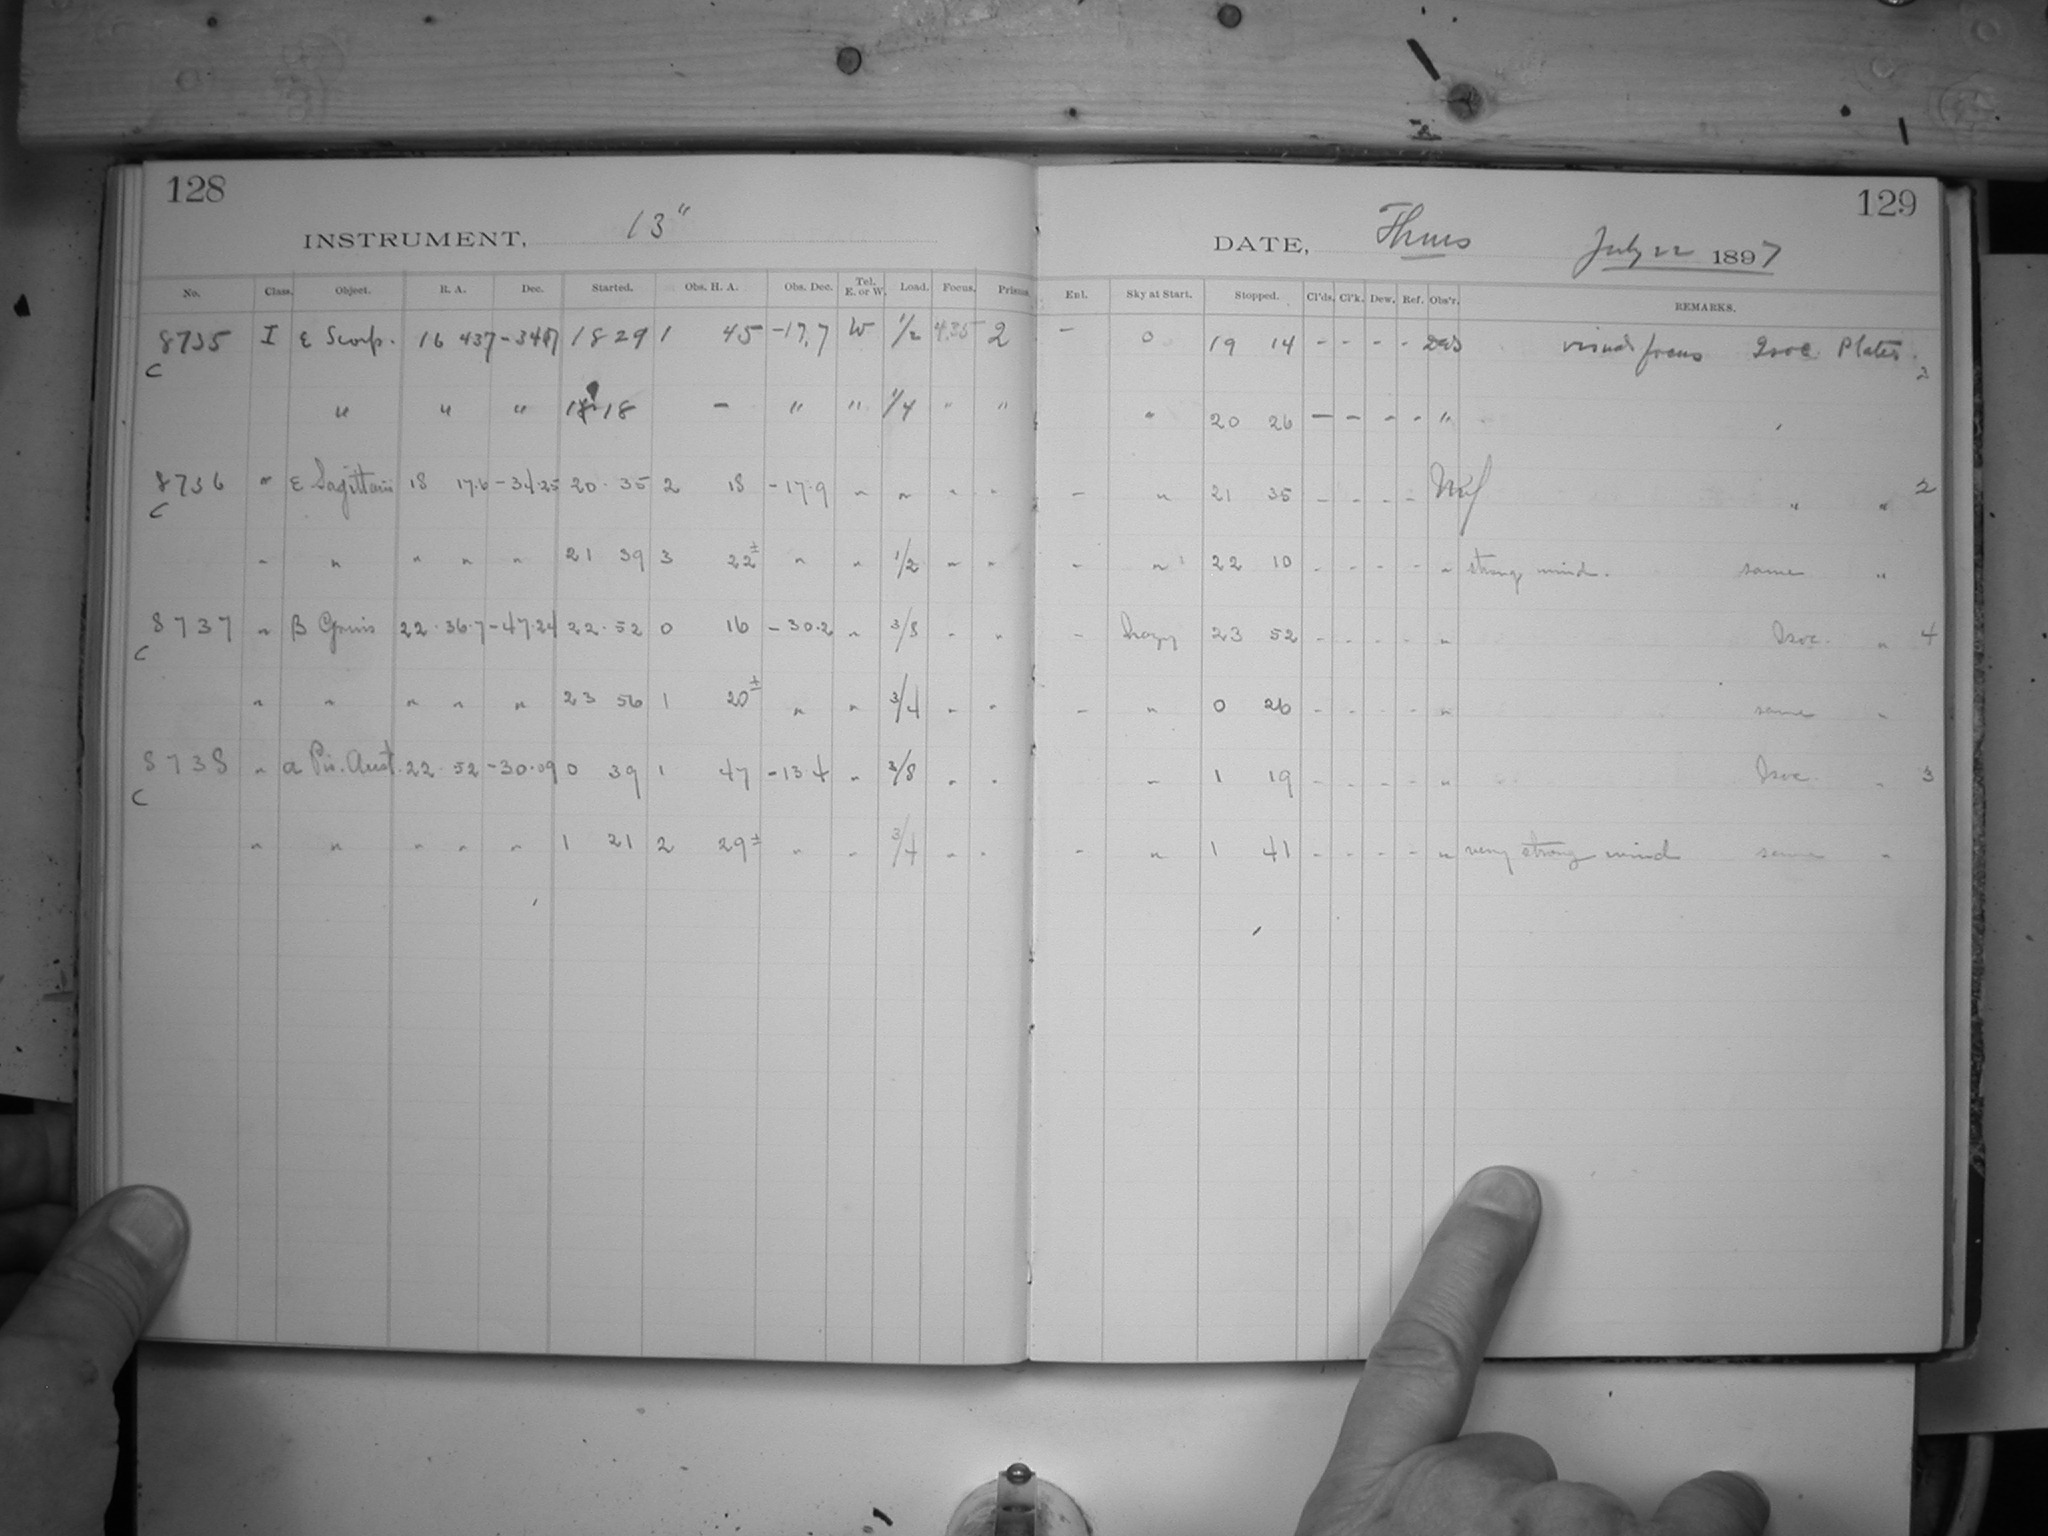 128
INSTRUMENT, 13"
No. Class. Object. R. A. Dec. Started. Obs. H. A. Obs. Dec. Tel. E. or W. Load. Focus. Prisms
8735 I ε Scorp. 16 437 -34 18 29 1 45 -17.7 W 1/2 4.35 2
C
" " " 18 " " 1/4 " "
8736 " ε Sagittarii 18 17.6 -34.25 20 35 2 18 -17.9 " " " "
C
" " " " " 21 39 3 22± " " 1/2 " "
8737 " β Gruis 22 36.7 -47.24 22 52 0 16 -30.2 " 3/8 " "
C
" " " " " 23 56 1 20± " " 3/4 " "
8738 " α Pis. Aust. 22 52 -30.09 0 39 1 47 -13.4 " 3/8 " "
C
" " " " " 1 21 2 29± " " 3/4 " "
129
DATE, Thurs July 22 1897
Enl. Sky at Start. Stopped. Cl'ds. Cl'k. Dew. Ref. Obs'r. REMARKS.
- 0 19 14 - - - - visual focus Isoc. Plates. 2
" 20 26 - - - - "
- " 21 35 - - - - " " 2
- " 22 10 - - - - " strong wind. same "
- hazy 23 52 - - - - " Isoc. " 4
- " 0 26 - - - - " same "
" 1 19 - - - - " Isoc. " 3
- " 1 41 - - - - " very strong wind same "